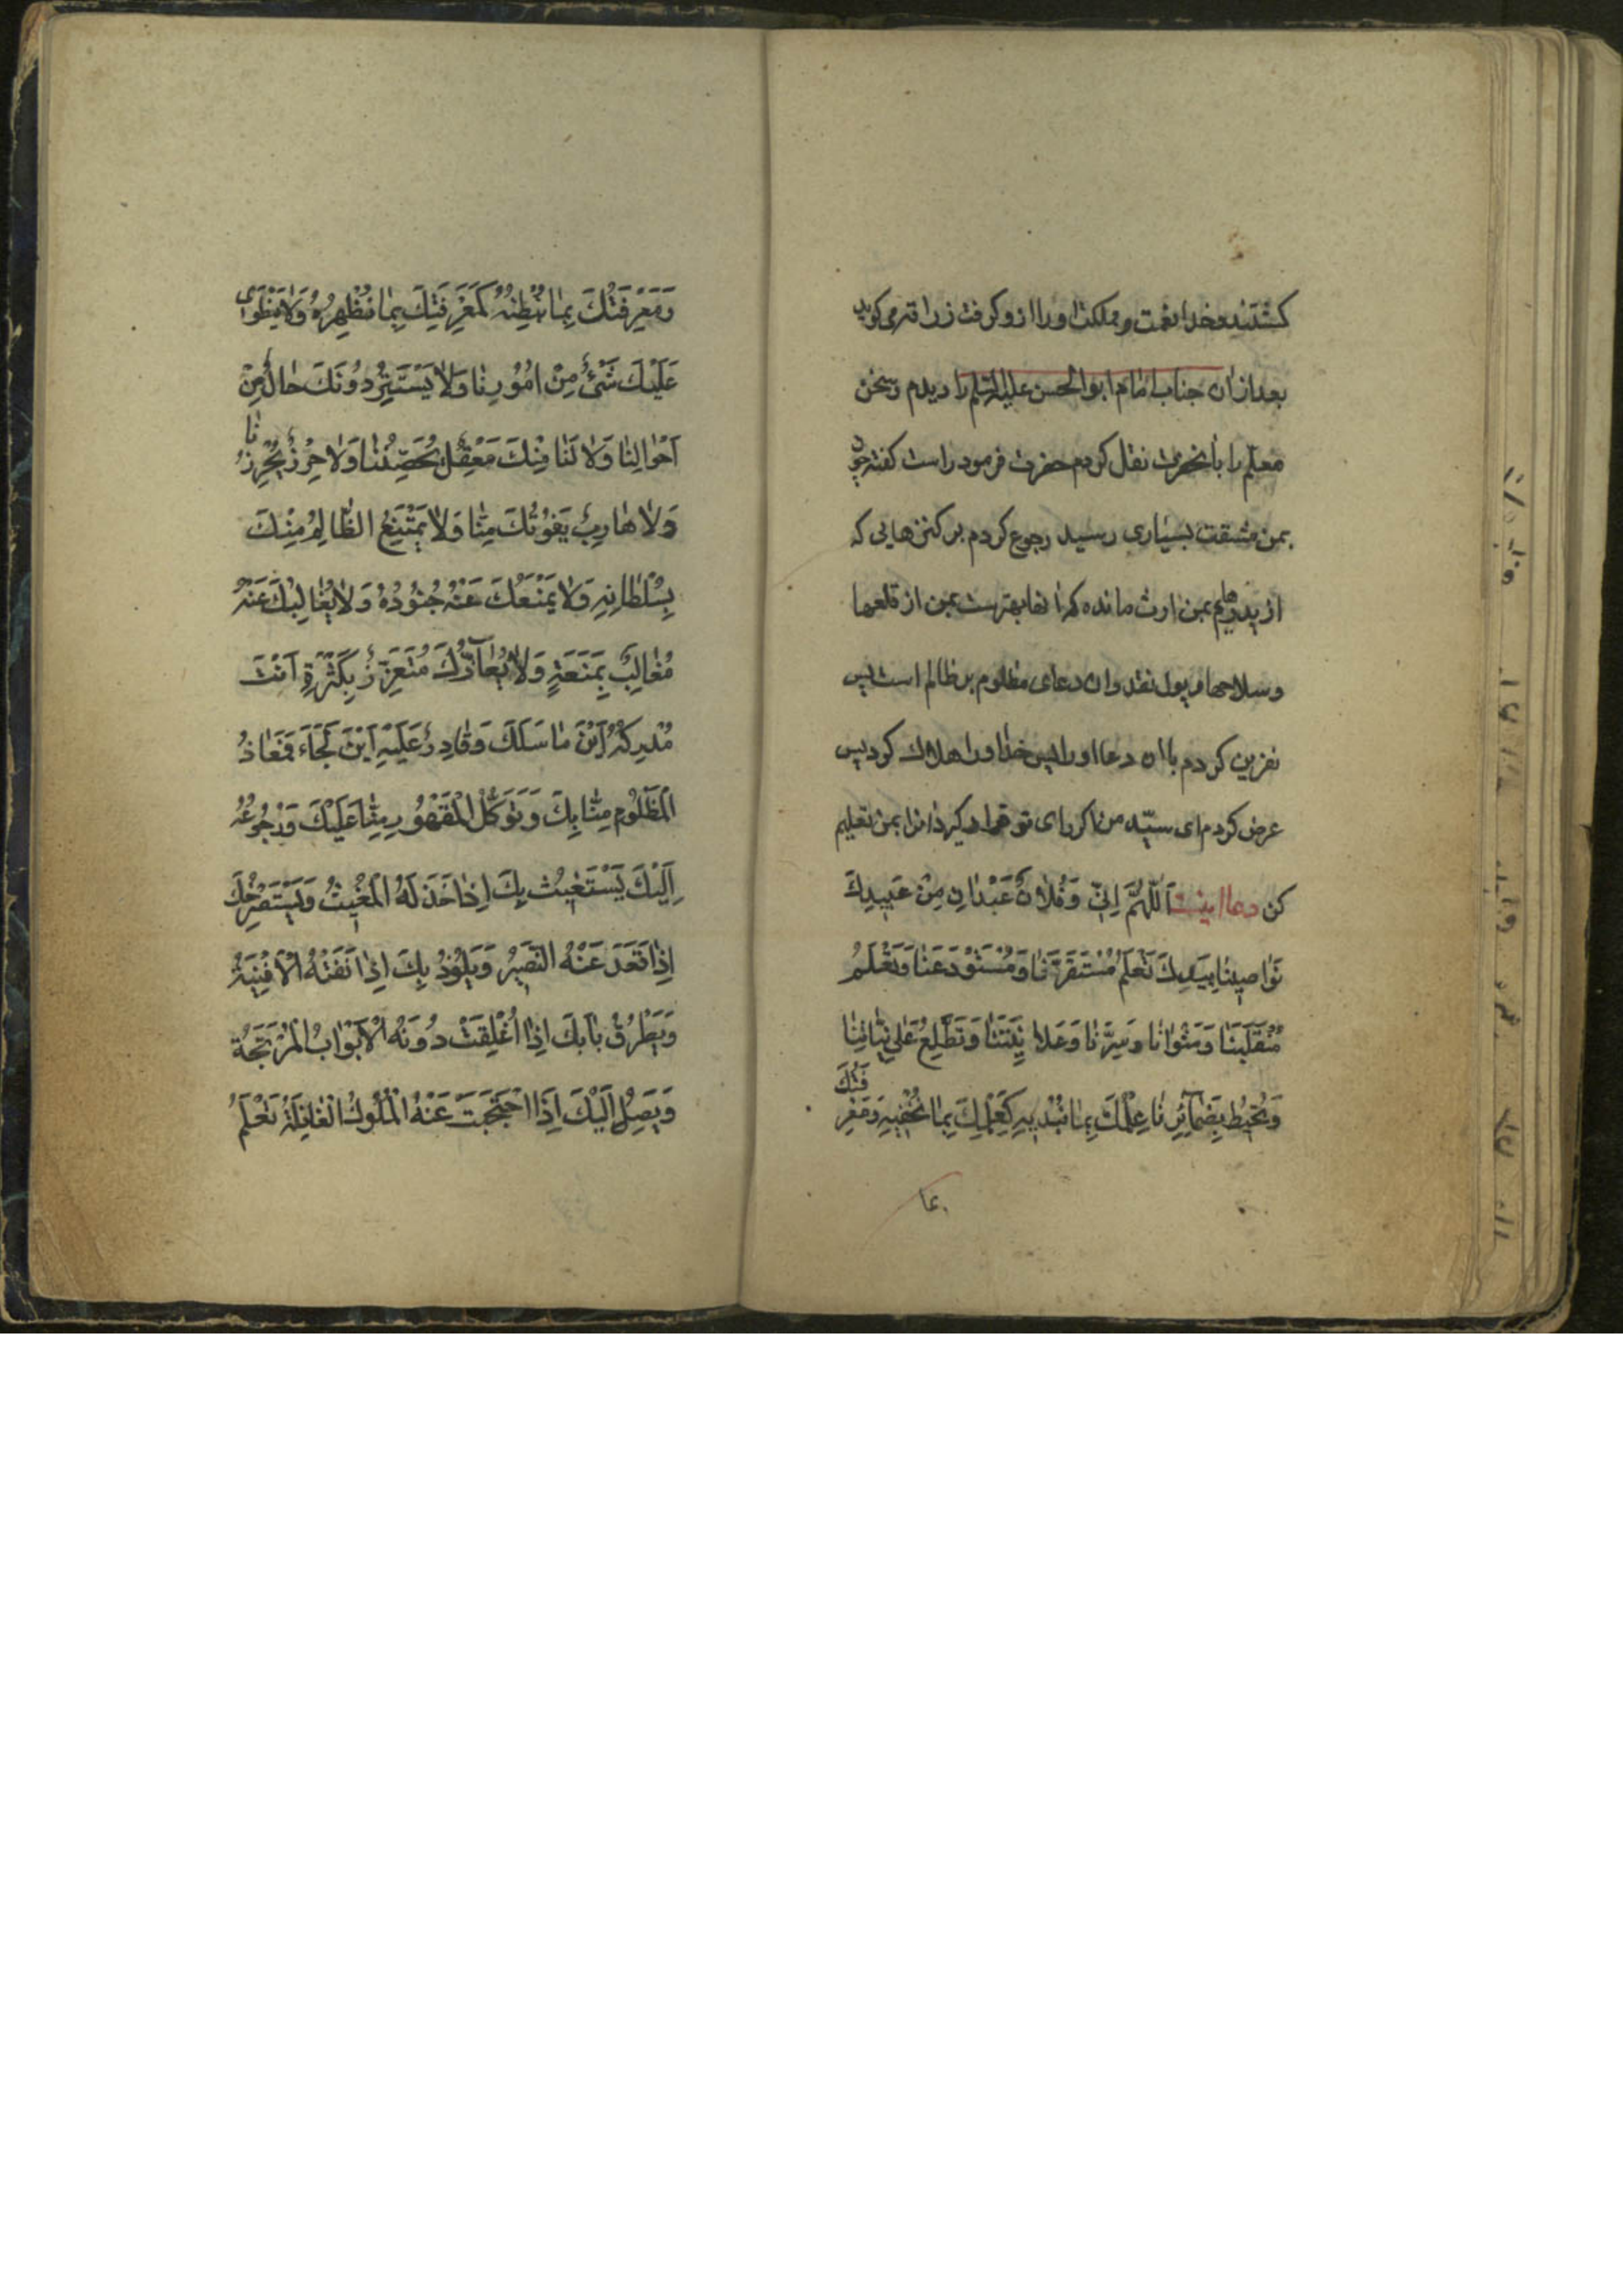 کشتند و خدا نعمت و مملکت او را ازو گرفت زرافه می گوید
بعد از ان جناب امام ابو الحسن علیه السلم را دیدم و سخن
معلم را بآنحضرت نقل کردم حضرت فرمود راست گفته چون
بمن مشقت بسیاری رسید رجوع کردم بر کنزهایی که
از پدرهایم بمن ارث مانده که آنها بهترست بمن از قلعها
و سلاحها و پول نقد و ان دعای مظلوم بر ظالم است پس
نفرین کردم باان دعا او را پس خدا او را هلاك کرد پس
عرض کردم ای سیّد من اکر رای تو قرار کیرد انرا بمن تعلیم
کن دعا اینست اَللّٰهُمَّ اِنّی وَ فُلانٌ عَبْدٰانِ مِنْ عَبیدِكَ
نَوٰاصینٰا بِیَدِكَ تَعْلَمُ مُسْتَقَرَّنٰا وَ مُسْتَوْدَعَنٰا وَ تَعْلَمُ
مُنْقَلَبَنٰا وَ مَثْوٰانٰا وَ سِرَّنٰا وَ عَلاٰنِیَتَنٰا وَ تَطَّلِعُ عَلیٰ نِیّٰاتِنٰا
وَ تُحیطُ بِضَمٰآئِرِنٰا عِلْمُكَ بِمٰا نُبْدیهِ كَعِلْمِكَ بِمٰا نُخْفیهِ وَ مَعْرِ
فَتُكَ
وَ مَعْرِفَتُكَ بِمٰا نُبْطِنُهُ كَمَعْرِفَتِكَ بِمٰا نُظْهِرُهُ وَلاٰ یَنْطَوی
عَلَیْكَ شَیْءٌ مِنْ اُمُورِنٰا وَلاٰ یَسْتَتِرُ دُونَكَ حٰالٌ مِنْ
اَحْوٰالِنٰا وَلاٰ لَنٰا مِنْكَ مَعْقِلٌ یُحَصِّنُنٰا وَلاٰ حِرْزٌ یُحْرِزُنٰا
وَلاٰ هٰارِبٌ یَفُوتُكَ مِنّٰا وَلاٰ یَمْتَنِعُ الظّٰالِمُ مِنْكَ
بِسُلْطٰانِهِ وَلاٰ یَمْنَعُكَ عَنْهُ جُنُودُهُ وَلاٰ یُغٰالِبُكَ عَنْهُ
مُغٰالِبٌ بِمَنَعَةٍ وَلاٰ یُعٰآزُّكَ مُتَعَزِّزٌ بِكَثْرَةٍ اَنْتَ
مُدْرِكُهُ اَیْنَ مٰا سَلَكَ وَ قٰادِرٌ عَلَیْهِ اَیْنَ لَجَاَءَ فَمَعٰاذُ
الْمَظْلُومِ مِنّٰا بِكَ وَ تَوَكُّلُ الْمَقْهُورِ مِنّٰا عَلَیْكَ وَ رُجُوعُهُ
اِلَیْكَ یَسْتَغیثُ بِكَ اِذٰا خَذَلَهُ الْمُغیثُ وَ یَسْتَصْرِخُكَ
اِذٰا قَعَدَ عَنْهُ النَّصیرُ وَ یَلُوذُ بِكَ اِذٰا نَفَتْهُ الْاَفْنِیَةُ
وَ یَطْرُقُ بٰابَكَ اِذٰا اُغْلِقَتْ دُونَهُ الْاَبْوٰابُ الْمُرْتَجَةُ
وَ یَصِلُ اِلَیْكَ اِذَا احْتَجَبَتْ عَنْهُ الْمُلُوكُ الْغٰافِلَةُ تَعْلَمُ